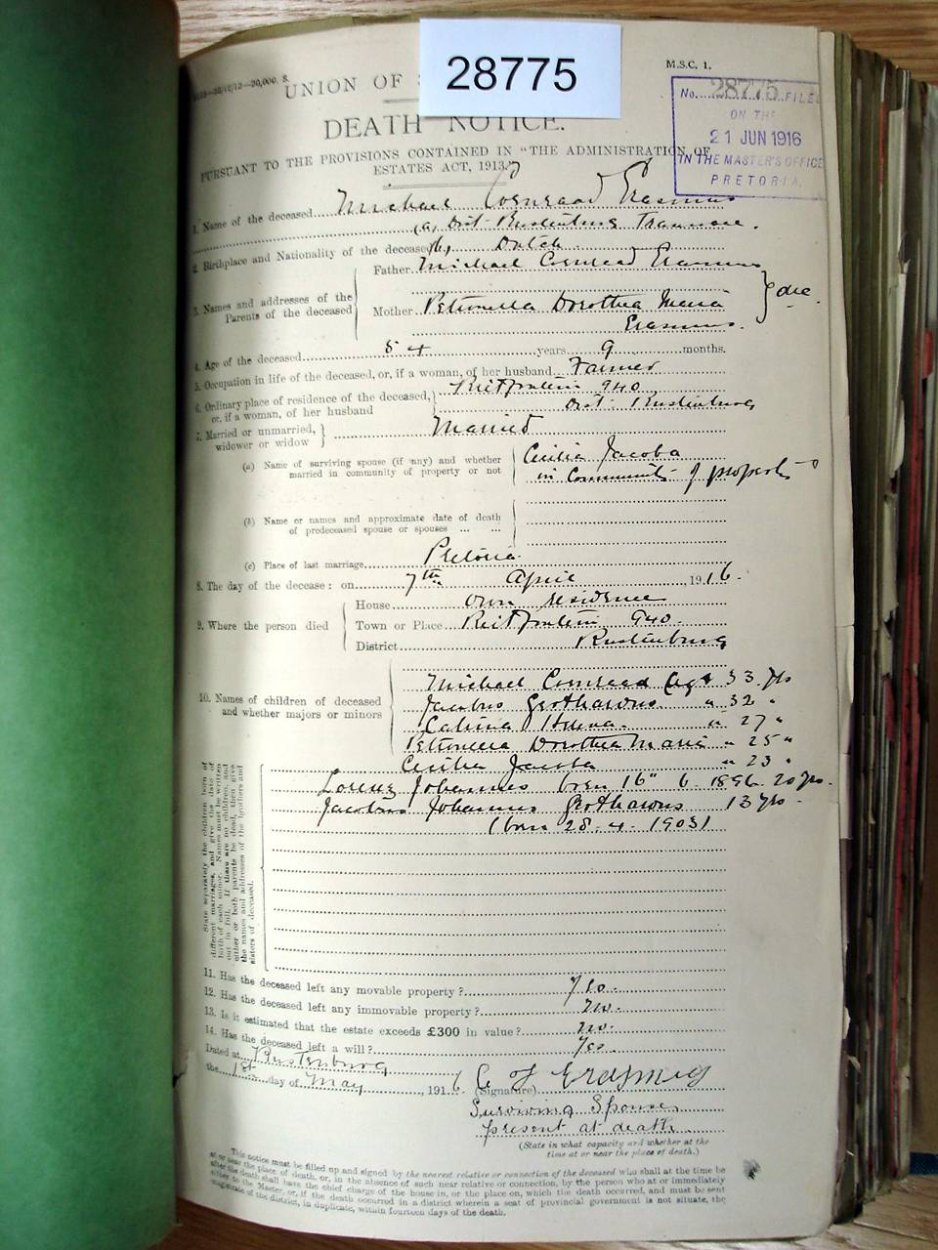 28775
M.S.C. 1.
UNION OF S
No. 28775 FILED
ON THE
21 JUN 1916
IN THE MASTER'S OFFICE
PRETORIA.
DEATH NOTICE.
PURSUANT TO THE PROVISIONS CONTAINED IN "THE ADMINISTRATION OF
ESTATES ACT, 1913."
1. Name of the deceased Michael Coenraad Erasmus
(a) Dist Rustenburg Transvaal.
2. Birthplace and Nationality of the deceased (b) Dutch
3. Names and addresses of the Parents of the deceased
Father Michael Coenraad Erasmus
Mother Petronella Dorothea Maria
Erasmus.
dec.
4. Age of the deceased 54 years 9 months.
5. Occupation in life of the deceased, or, if a woman, of her husband Farmer
6. Ordinary place of residence of the deceased, or, if a woman, of her husband
Rietfontein 940
Dist Rustenburg
7. Married or unmarried, widower or widow Married
(a) Name of surviving spouse (if any) and whether
married in community of property or not
Cecilia Jacoba
in Community of property
(b) Name or names and approximate date of death
of predeceased spouse or spouses ... ...
(c) Place of last marriage Pretoria
8. The day of the decease: on 7th April 1916.
9. Where the person died
House own residence
Town or Place Rietfontein 940.
District Rustenburg
10. Names of children of deceased
and whether majors or minors
Michael Coenraad Age 33 yrs
Jacobus 32 "
Catrina 27 "
Petronella Dorothea Maria " 25 "
Cecilia Jacoba " 23 "
Lorenz Johannes born 16" 6. 1896 20 yrs.
Jacobus Johannes 13 yrs.
(born 28.4.1903)
State separately the children born of
different marriages, and give the date of
birth of each minor. Names must be written
out in full. If there are no children, and
either or both parents be dead, then give
the names and addresses of the brothers and
sisters of deceased.
11. Has the deceased left any movable property? Yes.
12. Has the deceased left any immovable property? no.
13. Is it estimated that the estate exceeds £300 in value? no.
14. Has the deceased left a will? Yes
Dated at Rustenburg
the 1st day of May 1916
(Signature) C J Erasmus
Surviving Spouse
present at death.
(State in what capacity and whether at the
time at or near the place of death.)
This notice must be filled up and signed by the nearest relative or connection of the deceased who shall at the time be
at or near the place of death, or, in the absence of such near relative or connection, by the person who at or immediately
after the death shall have the chief charge of the house in, or the place on, which the death occurred, and must be sent
either to the Master, or, if the death occurred in a district wherein a seat of provincial government is not situate, the
magistrate of the district, in duplicate, within fourteen days of the death.